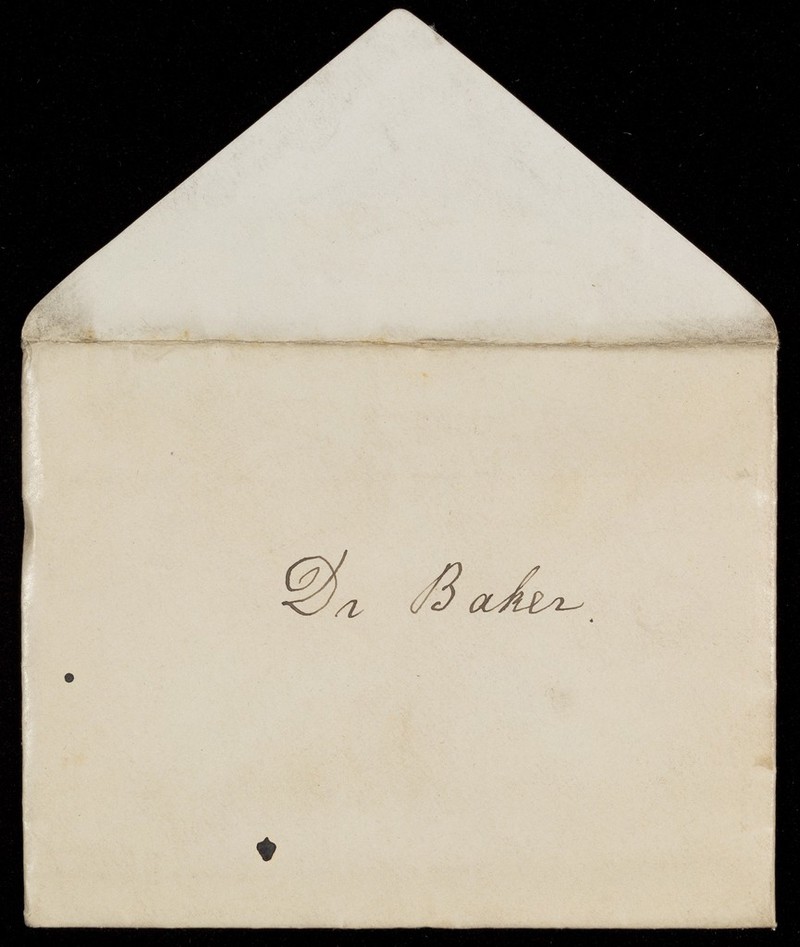 Dr Baker.